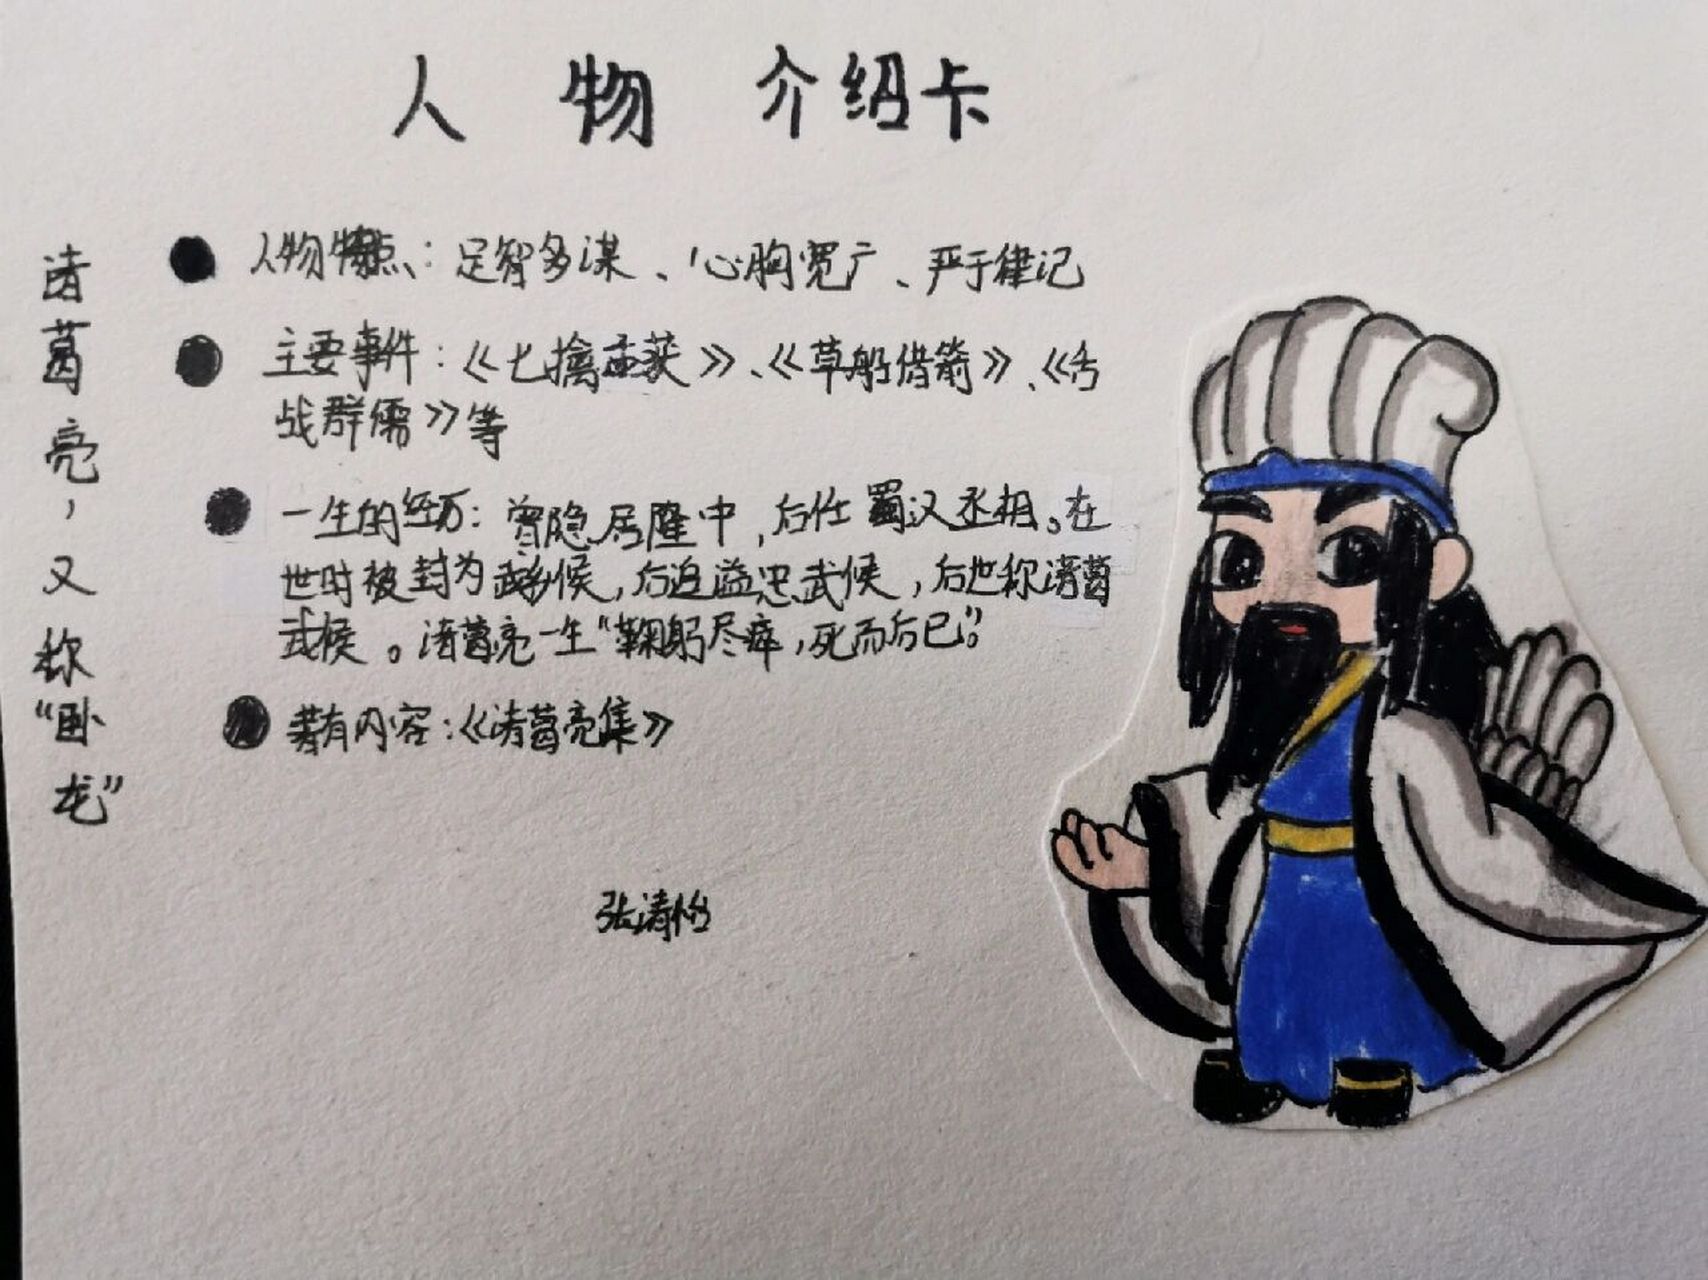 人物介绍卡
诸葛亮，又称“卧龙”
人物特点：足智多谋、心胸宽广、严于律记
主要事件：《七擒孟获》、《草船借箭》、《舌
战群儒》等
一生的经历：曾隐居隆中，后任蜀汉丞相。在
世时被封为武乡候，后追谥忠武候，后世称诸葛
武候。诸葛亮一生“鞠躬尽瘁，死而后已”。
著有内容：《诸葛亮集》
张清怡